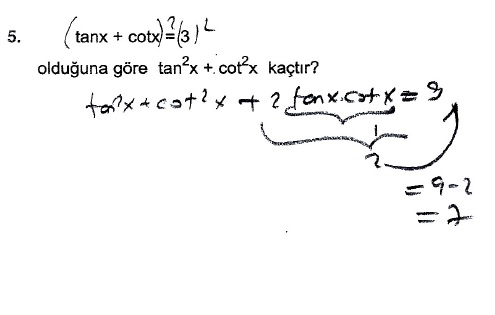 5. (tanx + cotx)² = (3)²
olduğuna göre tan²x + cot²x kaçtır?
tan²x + cot²x + 2 tanx.cotx = 9
1
2
= 9-2
= 7